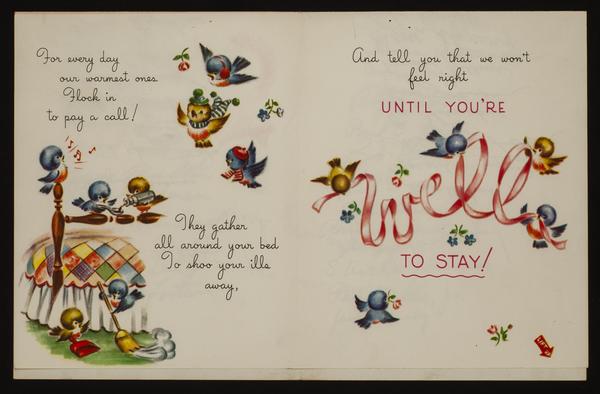 For every day
our warmest ones
Flock in
to pay a call!
They gather
all around your bed
To shoo your ills
away,
And tell you that we won't
feel right
UNTIL YOU'RE
Well
TO STAY!